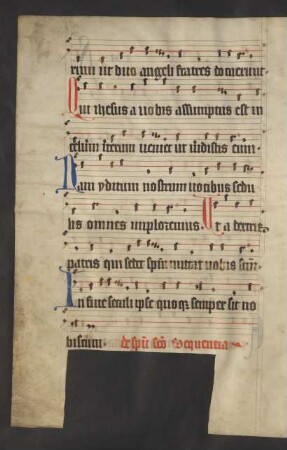 rum ut duo angeli fratres docuerunt
Qui ihesus a uobis assumptus est in
celum iterum ueniet ut uidistis eum
Iam ydithun nostrum uocibus sedu
lis omnes imploremus Ut a dextris
patris qui sedet spm mittat nobis scm
In fine seculi ipse quoq semper sit no
biscum de spu sco Sequentia